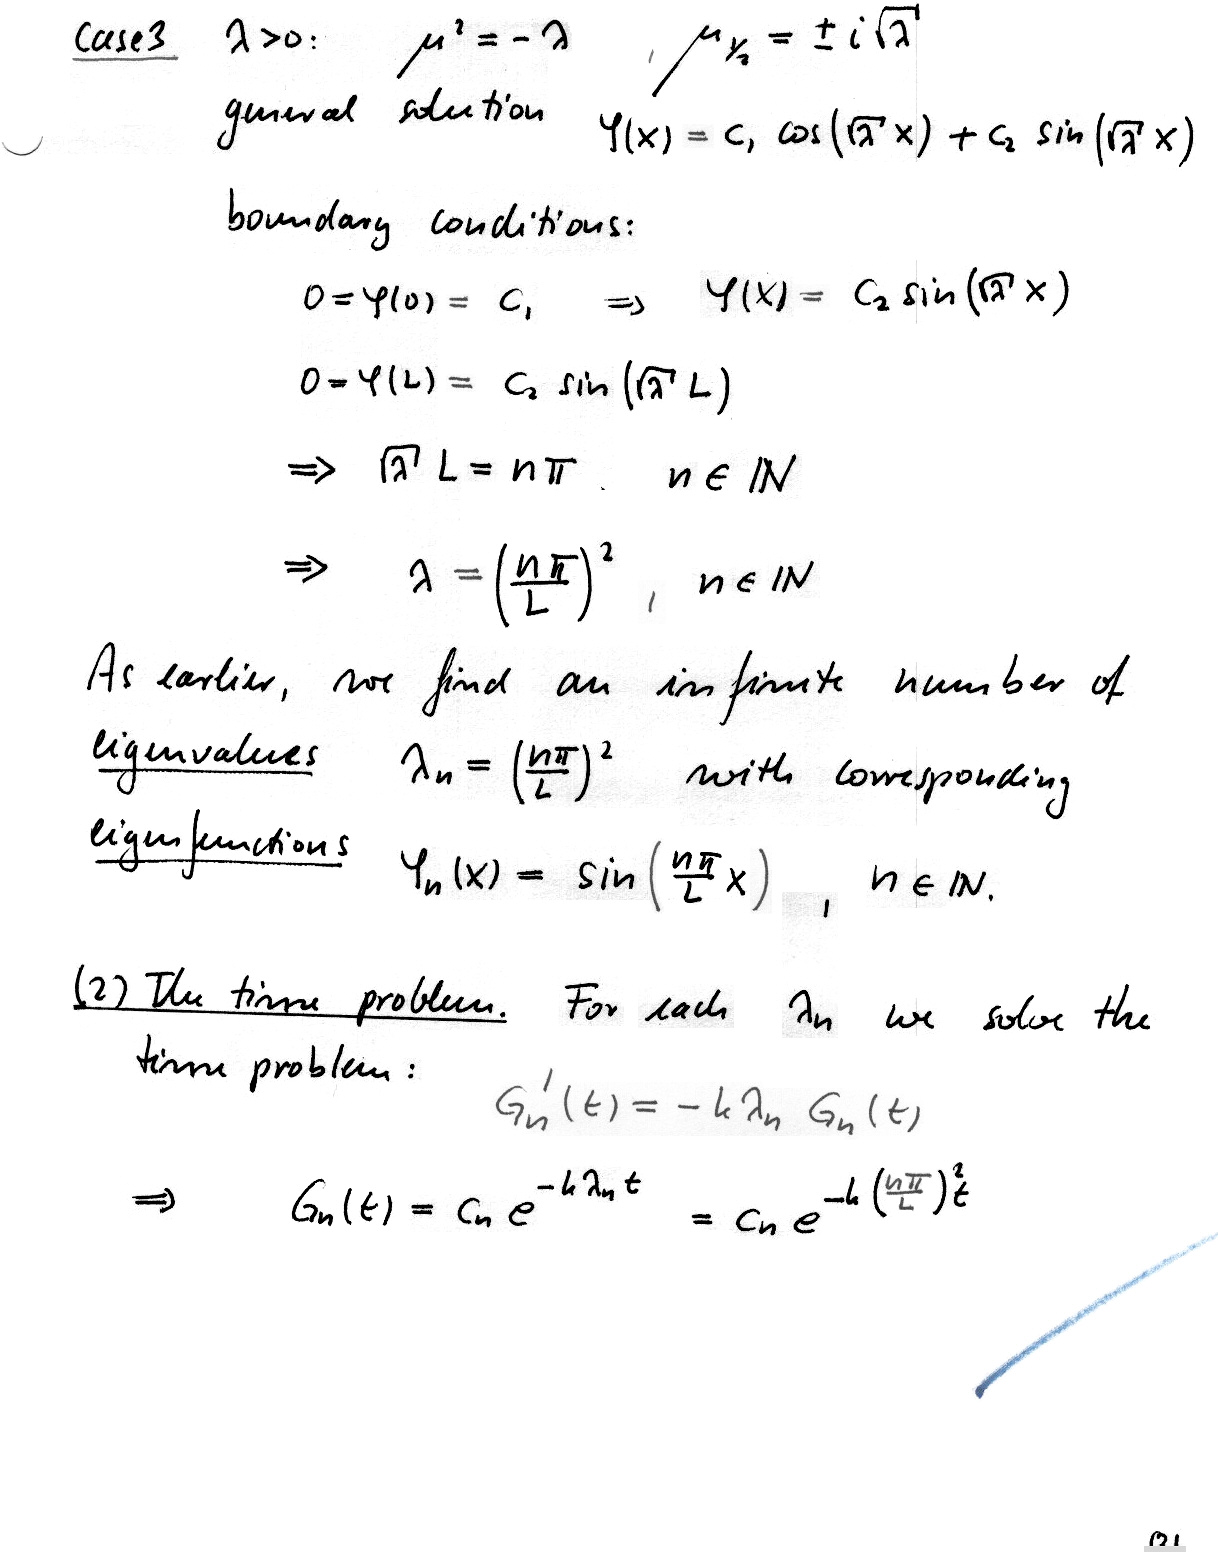 Case 3 λ > 0: μ² = -λ , μ₁/₂ = ± i√λ
general solution φ(x) = c₁ cos(√λ x) + c₂ sin(√λ x)
boundary conditions:
0 = φ(0) = c₁ ⇒ φ(x) = c₂ sin(√λ x)
0 = φ(L) = c₂ sin(√λ L)
⇒ √λ L = nπ . n ∈ ℕ
⇒ λ = (nπ/L)² , n ∈ ℕ
As earlier, we find an infinite number of
eigenvalues λₙ = (nπ/L)² with corresponding
eigenfunctions φₙ(x) = sin(nπ/L x) , n ∈ ℕ.
(2) The time problem. For each λₙ we solve the
time problem:
Gₙ'(t) = -kλₙ Gₙ(t)
⇒ Gₙ(t) = cₙ e^{-kλₙt} = cₙ e^{-k(nπ/L)²t}